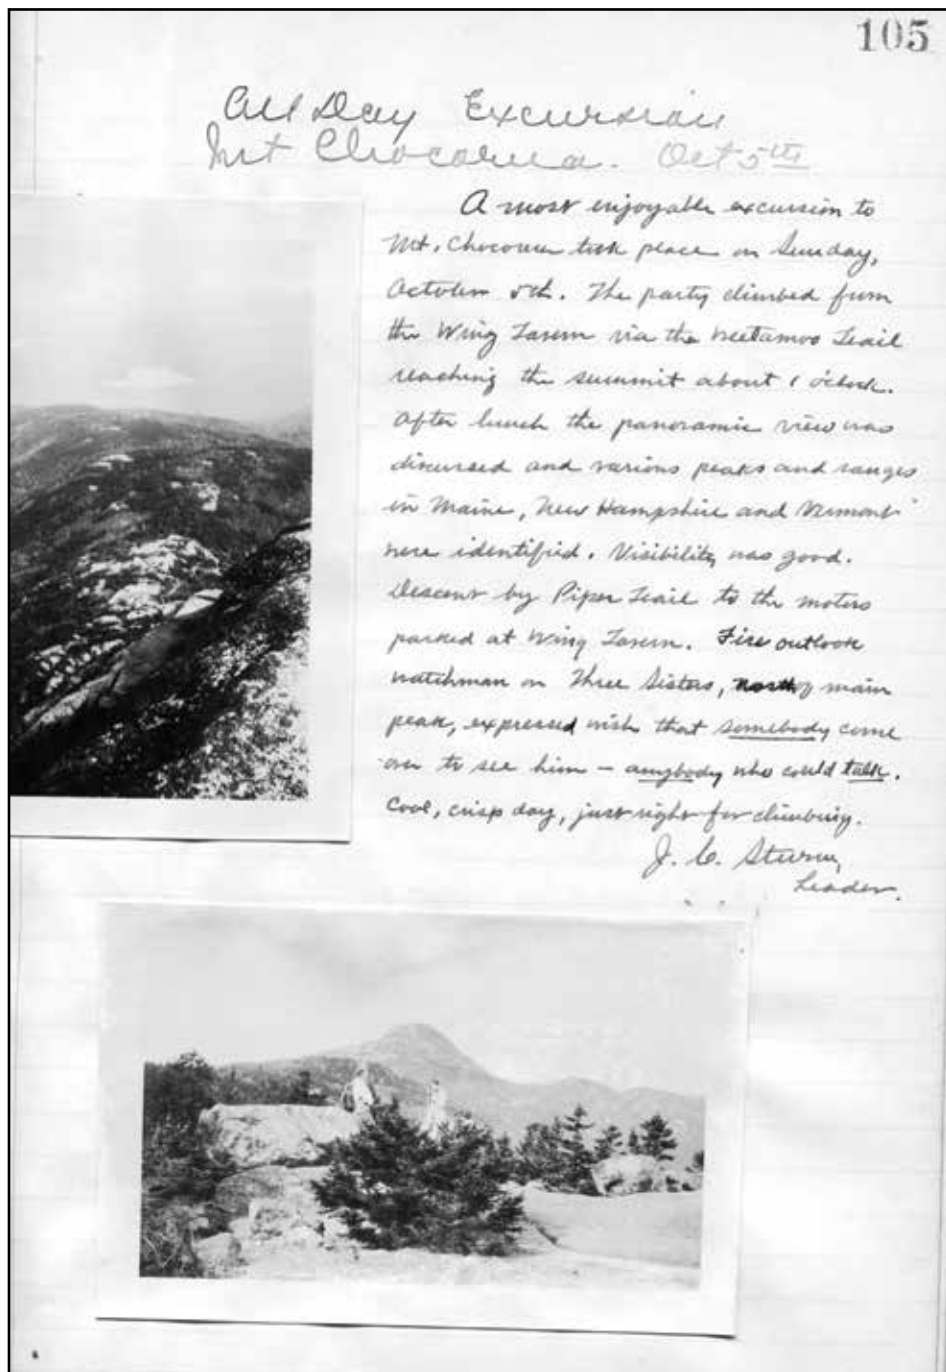 105
All Day Excursion
Mt Chocorua. Oct 5th
A most enjoyable excursion to
Mt. Chocorua took place on Sunday,
October 5th. The party climbed from
the Wing Tavern via the Weetamoo Trail
reaching the summit about 1 o'clock.
After lunch the panoramic view was
discussed and various peaks and ranges
in Maine, New Hampshire and Vermont
were identified. Visibility was good.
Descent by Piper Trail to the motors
parked at Wing Tavern. Fire outlook
watchman on Three Sisters, north of main
peak, expressed wish that somebody come
over to see him – anybody who could talk.
Cool, crisp day, just right for climbing.
J. C. Sturm,
Leader.